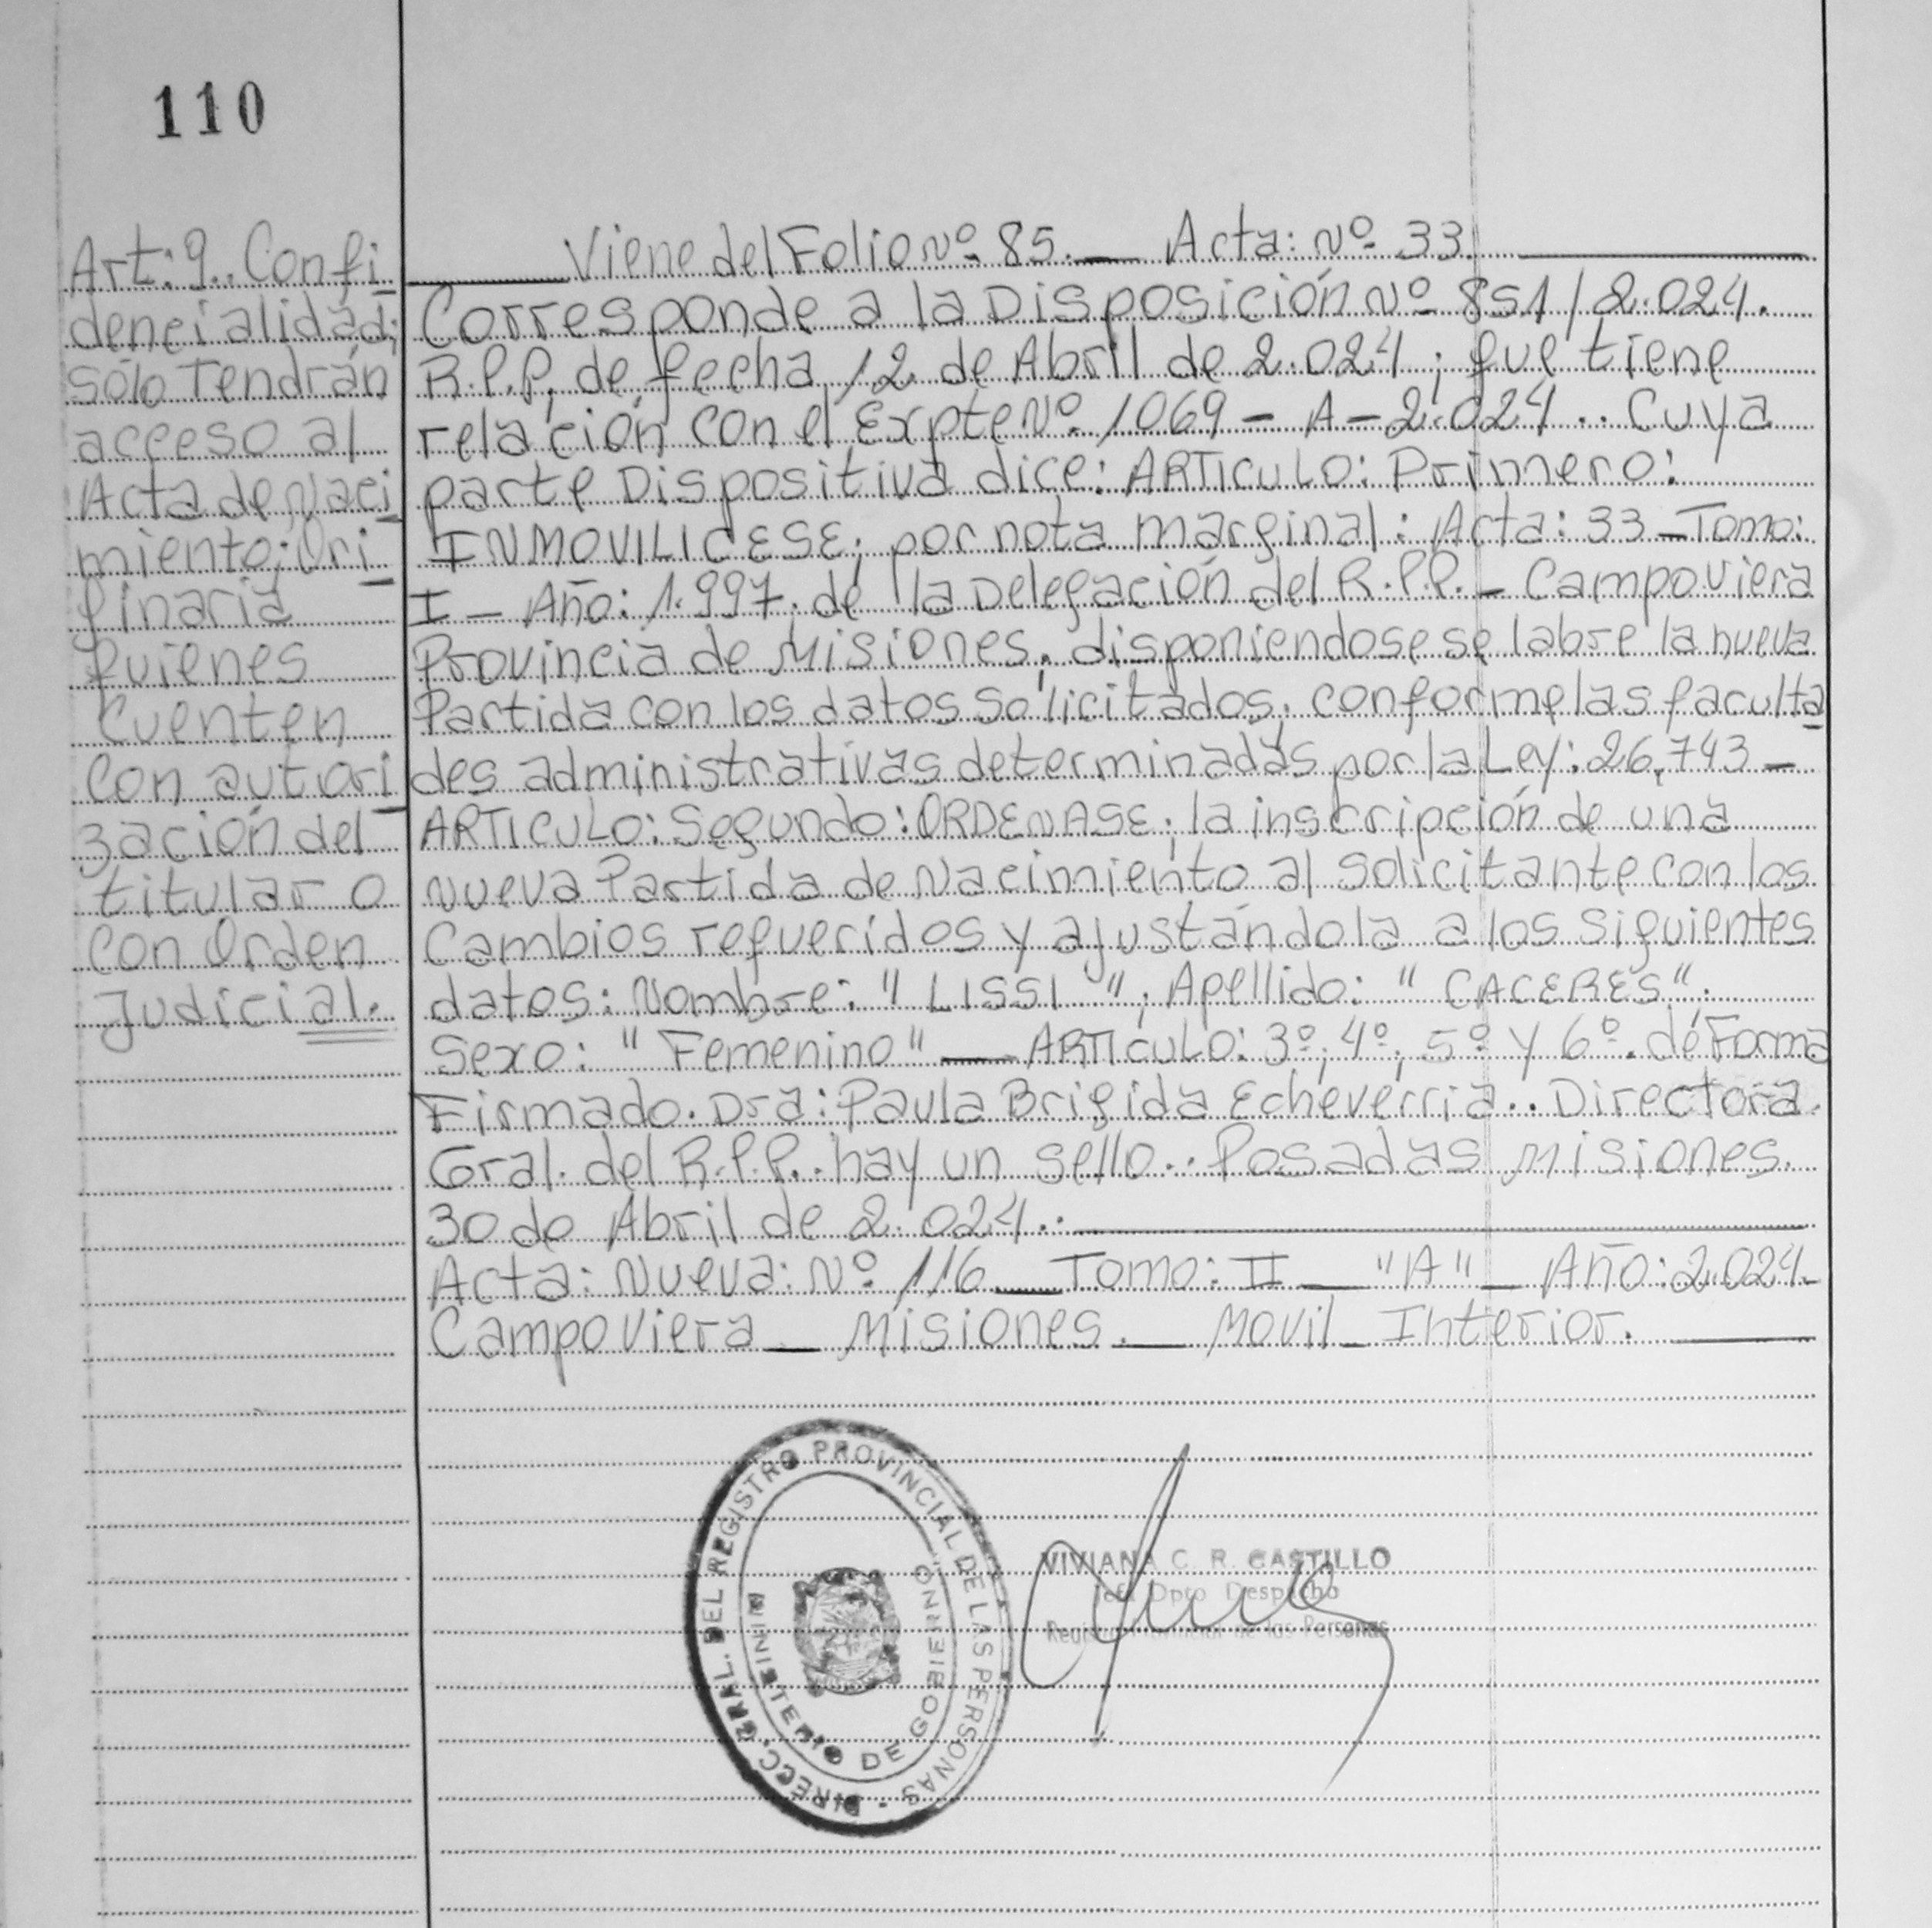 110
Art: 9.. Confi
dencialidad;
Sólo Tendrán
acceso al
Acta de Naci
miento; Ori
ginaria
quienes
Cuenten
Con autori
zación del
titular o
con Orden
Judicial.
Viene del Folio Nº 85. — Acta: Nº 33.
Corresponde a la Disposición Nº 851/2.024.
R.P.P. de fecha 12 de Abril de 2.024; que tiene
relación con el Expte Nº 1069 - A - 2.024.. Cuya
parte Dispositiva dice: ARTICULO: Primero:
INMOVILICESE; por nota marginal: Acta: 33 - Tomo:
I - Año: 1.997. de la Delegación del R.P.P. - Campo Viera
Provincia de Misiones. disponiendose se labre la nueva
Partida con los datos Solicitados; conforme las faculta
des administrativas determinadas por la Ley: 26.743 -
ARTICULO: Segundo: ORDENASE; la inscripción de una
nueva Partida de Nacimiento al Solicitante con los
Cambios requeridos y ajustándola a los siguientes
datos: Nombre: "LISSI"; Apellido: "CACERES".
Sexo: "Femenino" — ARTICULO: 3º; 4º; 5º y 6º. de Forma
Firmado. Dra: Paula Brigida Echeverria.. Directora.
Gral. del R.P.P.. hay un sello.. Posadas Misiones.
30 de Abril de 2.024..
Acta: Nueva: Nº 116 — Tomo: II — "A" — Año: 2.024.
Campo Viera — Misiones. — Movil — Interior.
DIRECC. GRAL. DEL REGISTRO PROVINCIAL DE LAS PERSONAS
MINISTERIO DE GOBIERNO
VIVIANA C. R. CASTILLO
Jefa Dpto Despacho
Registro Provincial de las Personas